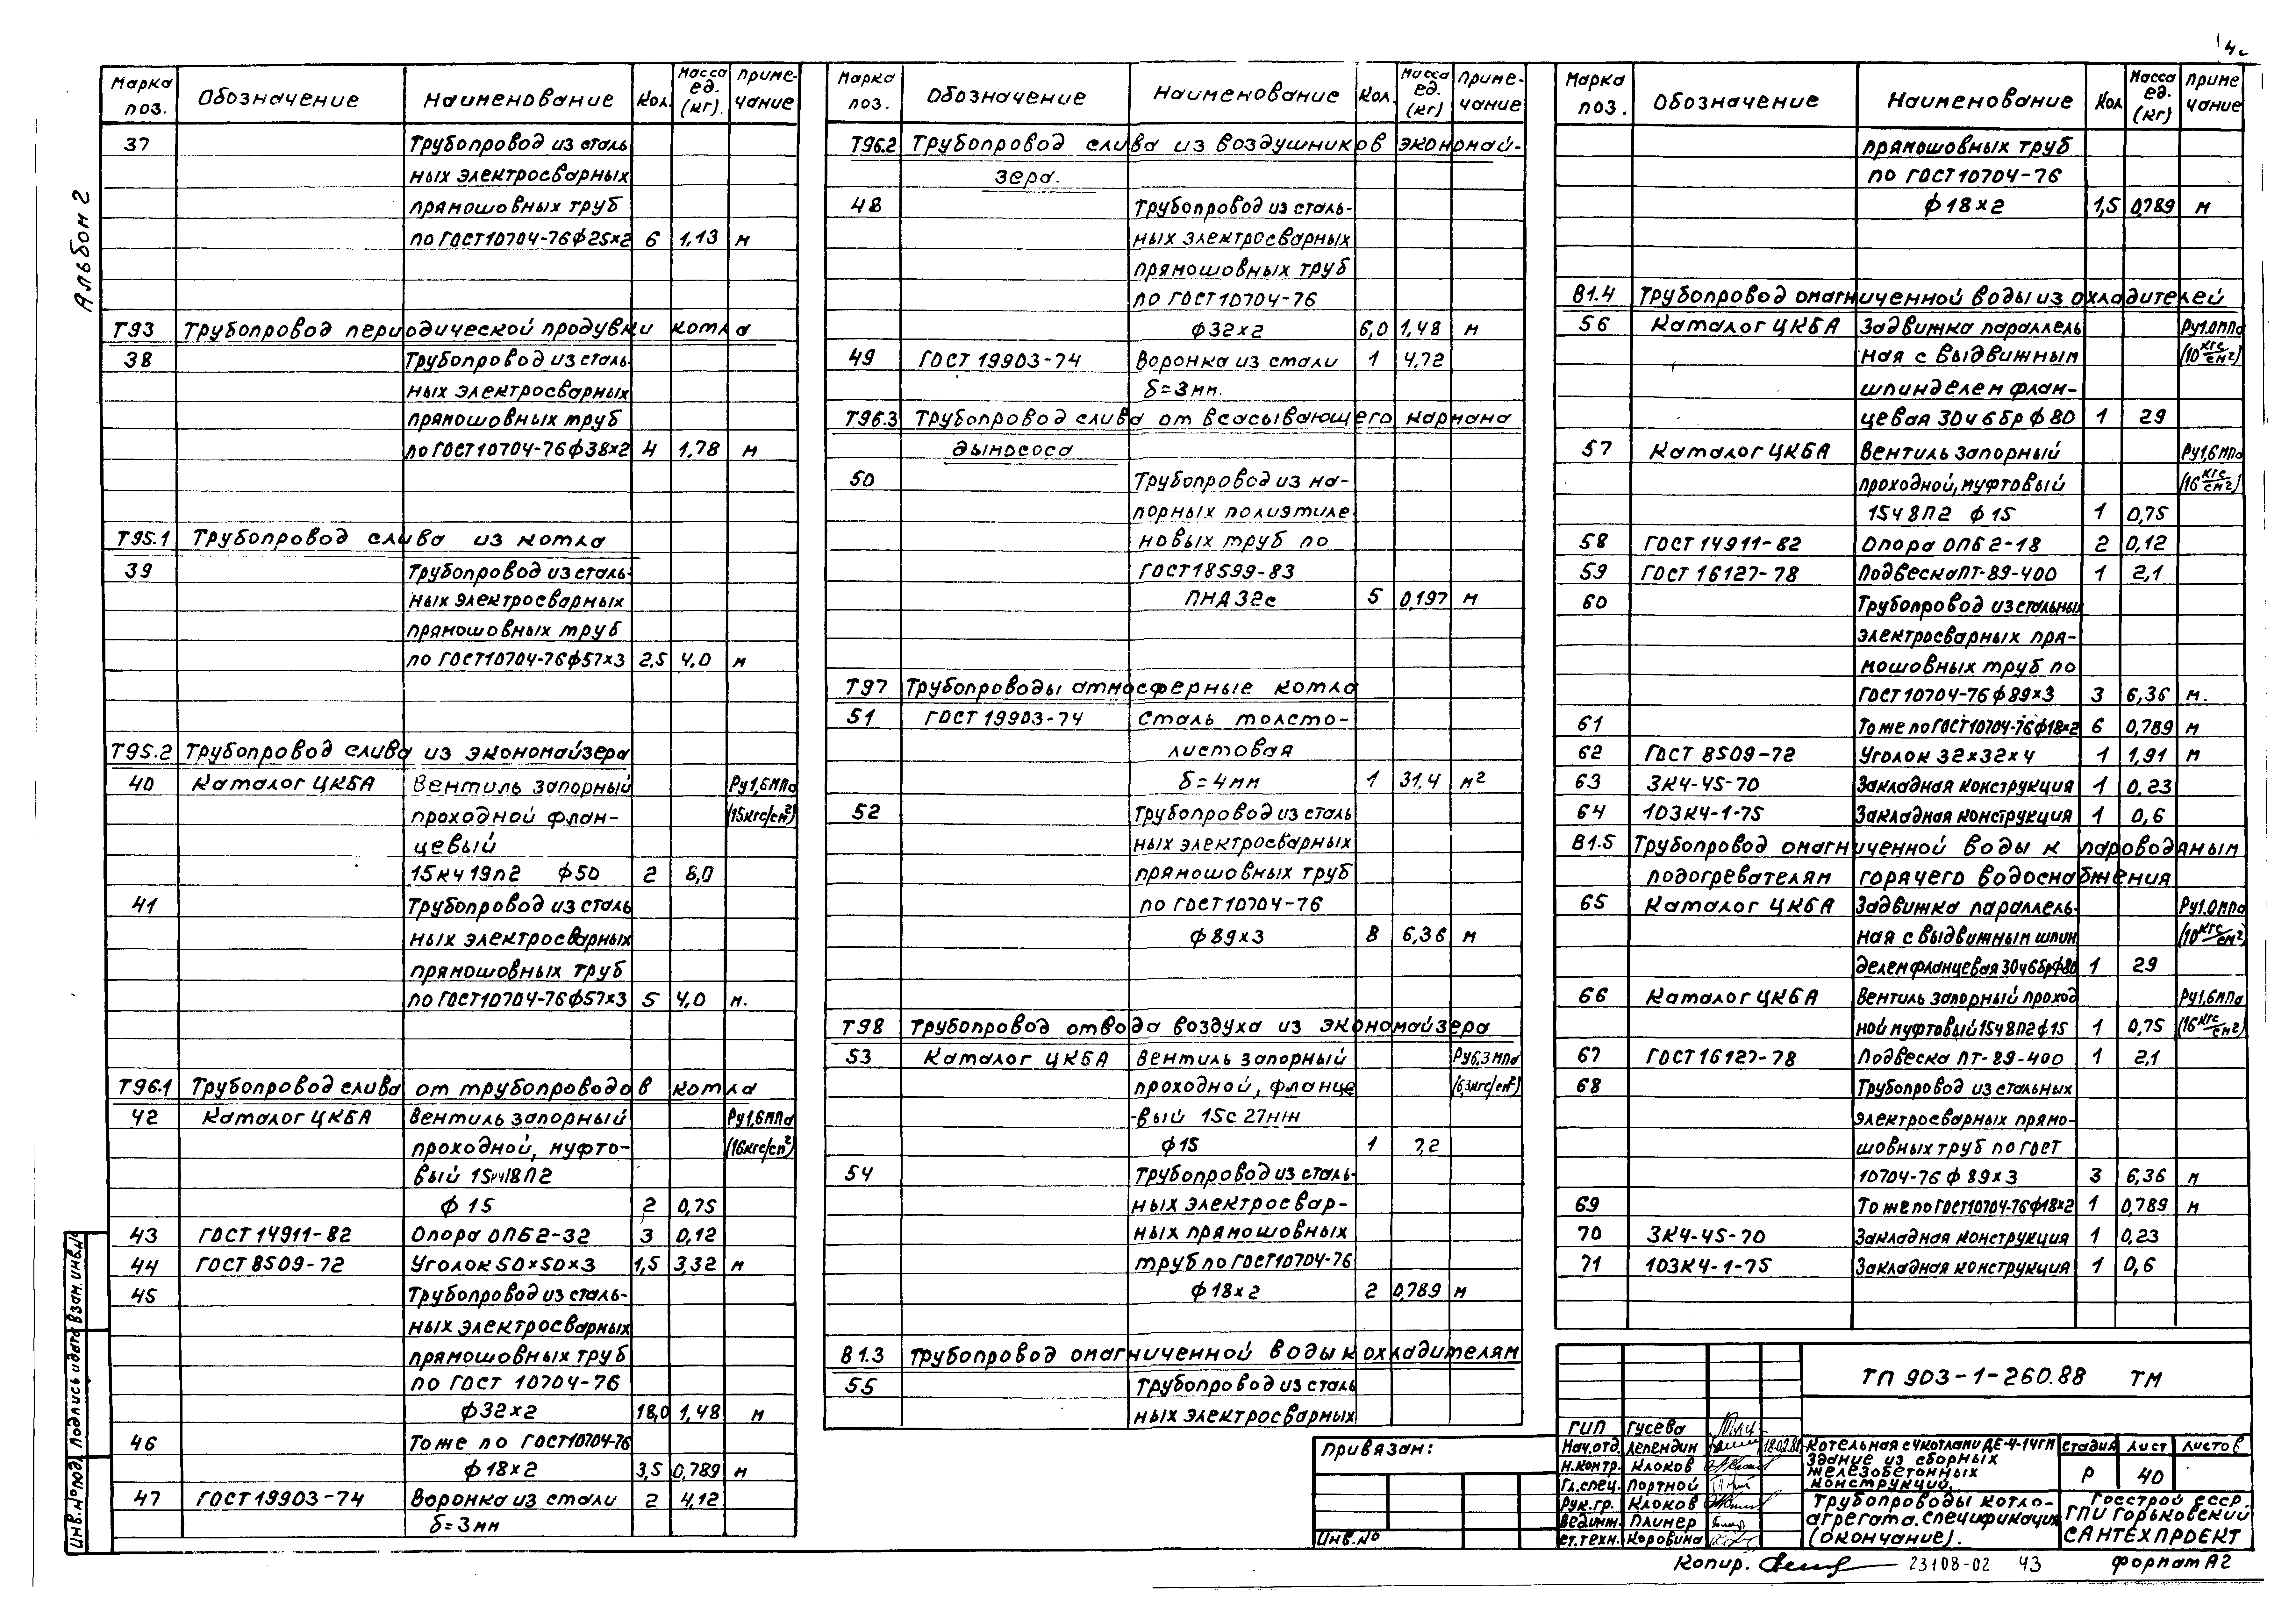 Альбом 2
Марка поз. Обозначение Наименование Кол. Масса ед. (кг). Приме-чание
37 Трубопровод из сталь
ных электросварных
прямошовных труб
по ГОСТ10704-76ф25×2 6 1,13 м
Т93 Трубопровод периодической продувки котла
38 Трубопровод из сталь
ных электросварных
прямошовных труб
по ГОСТ10704-76ф38×2 4 1,78 м
Т95.1 Трубопровод слива из котла
39 Трубопровод из сталь-
ных электросварных
прямошовных труб
по ГОСТ10704-76ф57×3 2,5 4,0 м
Т95.2 Трубопровод слива из экономайзера
40 Каталог ЦКБА Вентиль запорный Ру1,6МПа
проходной флан- (15кгс/см²)
цевый
15кч19п2 ф50 2 8,0
41 Трубопровод из сталь
ных электросварных
прямошовных труб
по ГОСТ10704-76ф57×3 5 4,0 м.
Т96.1 Трубопровод слива от трубопроводов котла
42 Каталог ЦКБА Вентиль запорный Ру1,6МПа
проходной, муфто- (16кгс/см²)
вый 15ч18п2
ф15 2 0,75
43 ГОСТ 14911-82 Опора ОПБ2-32 3 0,12
44 ГОСТ 8509-72 Уголок 50×50×3 1,5 3,32 м
45 Трубопровод из сталь-
ных электросварных
прямошовных труб
по ГОСТ 10704-76
ф32×2 18,0 1,48 м
46 Тоже по ГОСТ10704-76
ф18×2 3,5 0,789 м
47 ГОСТ19903-74 Воронка из стали 2 4,12
δ=3мм
Марка поз. Обозначение Наименование Кол. Масса ед. (кг) Приме-чание
Т96.2 Трубопровод слива из воздушников экономай-
зера.
48 Трубопровод из сталь-
ных электросварных
прямошовных труб
по ГОСТ10704-76
ф32×2 6,0 1,48 м
49 ГОСТ 19903-74 Воронка из стали 1 4,72
δ=3мм.
Т96.3 Трубопровод слива от всасывающего кармана
дымососа
50 Трубопровод из на-
порных полиэтиле
новых труб по
ГОСТ18599-83
ПНД32с 5 0,197 м
Т97 Трубопроводы атмосферные котла
51 ГОСТ 19903-74 Сталь толсто-
листовая
δ=4мм 1 31,4 м²
52 Трубопровод из сталь
ных электросварных
прямошовных труб
по ГОСТ10704-76
ф89×3 8 6,36 м
Т98 Трубопровод отвода воздуха из экономайзера
53 Каталог ЦКБА Вентиль запорный Ру6,3МПа
проходной, фланце (63кгс/см²)
-вый 15с27нж
ф15 1 7,2
54 Трубопровод из сталь-
ных электросвар-
ных прямошовных
труб по ГОСТ10704-76
ф18×2 2 0,789 м
В1.3 Трубопровод омагниченной воды к охладителям
55 Трубопровод из сталь
ных электросварных
Марка поз. Обозначение Наименование Кол Масса ед. (кг) Приме чание
прямошовных труб
по ГОСТ10704-76
ф18×2 1,5 0,789 м
В1.4 Трубопровод омагниченной воды из охладителей
56 Каталог ЦКБА Задвижка параллель Ру1.0МПа
ная с выдвижным (10 кгс/см²)
шпинделем флан-
цевая 30ч6бр ф80 1 29
57 Каталог ЦКБА Вентиль запорный Ру1,6МПа
проходной, муфтовый (16 кгс/см²)
15ч8п2 ф15 1 0,75
58 ГОСТ 14911-82 Опора ОПБ2-18 2 0,12
59 ГОСТ 16127-78 Подвеска ПТ-89-400 1 2,1
60 Трубопровод из стальных
электросварных пря-
мошовных труб по
ГОСТ10704-76ф89×3 3 6,36 м.
61 Тоже по ГОСТ10704-76ф18×2 6 0,789 м
62 ГОСТ 8509-72 Уголок 32×32×4 1 1,91 м
63 ЗК4-45-70 Закладная конструкция 1 0,23
64 10ЗК4-1-75 Закладная конструкция 1 0,6
В1.5 Трубопровод омагниченной воды к пароводяным
подогревателям горячего водоснабжения
65 Каталог ЦКБА Задвижка параллель- Ру1.0МПа
ная с выдвижным шпин (10 кгс/см²)
делем фланцевая 30ч6брф80 1 29
66 Каталог ЦКБА Вентиль запорный проход Ру1,6МПа
ной муфтовый 15ч8п2ф15 1 0,75 (16 кгс/см²)
67 ГОСТ16127-78 Подвеска ПТ-89-400 1 2,1
68 Трубопровод из стальных
электросварных прямо-
шовных труб по ГОСТ
10704-76 ф89×3 3 6,36 м
69 Тоже по ГОСТ10704-76ф18×2 1 0,789 м
70 ЗК4-45-70 Закладная конструкция 1 0,23
71 10ЗК4-1-75 Закладная конструкция 1 0,6
ТП 903-1-260.88 ТМ
Привязан:
Инв.№
ГИП Гусева
Нач.отд. Лепендин
Н.контр. Клоков
Гл.спец. Портной
Рук.гр. Клоков
Вед.инж. Плинер
Ст.техн. Коровина
Котельная с 4 котлами ДЕ-4-14ГМ
Здание из сборных
железобетонных
конструкций.
Стадия Лист Листов
Р 40
Трубопроводы котло-
агрегата. Спецификация
(окончание).
Госстрой СССР.
ГПИ Горьковский
САНТЕХПРОЕКТ
Копир. 23108-02 43 формат А2
Взам.инв.№
Подпись и дата
Инв.№ подл